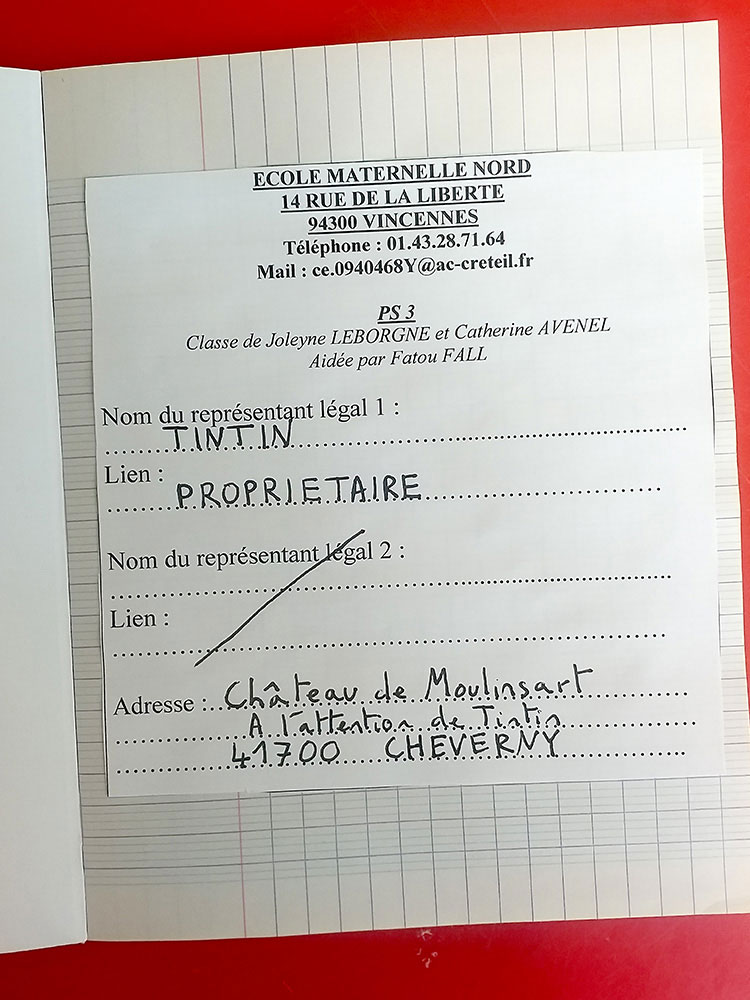 ECOLE MATERNELLE NORD
14 RUE DE LA LIBERTE
94300 VINCENNES
Téléphone : 01.43.28.71.64
Mail : ce.0940468Y@ac-creteil.fr
PS 3
Classe de Joleyne LEBORGNE et Catherine AVENEL
Aidée par Fatou FALL
Nom du représentant légal 1 :
TINTIN
Lien :
PROPRIETAIRE
Nom du représentant légal 2 :
Lien :
Adresse : Château de Moulinsart
A l'attention de Tintin
41700 CHEVERNY